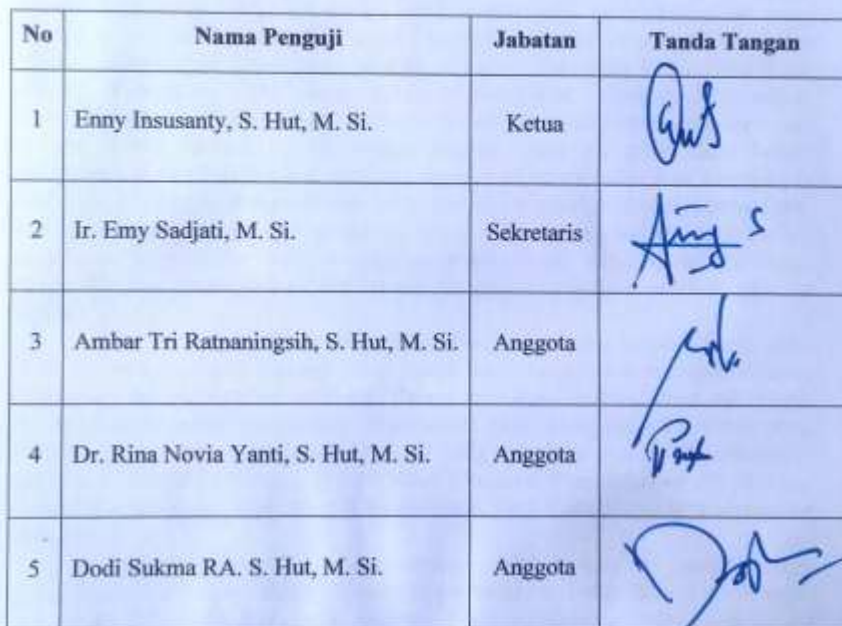 No Nama Penguji Jabatan Tanda Tangan
1 Enny Insusanty, S. Hut, M. Si. Ketua
2 Ir. Emy Sadjati, M. Si. Sekretaris
3 Ambar Tri Ratnaningsih, S. Hut, M. Si. Anggota
4 Dr. Rina Novia Yanti, S. Hut, M. Si. Anggota
5 Dodi Sukma RA. S. Hut, M. Si. Anggota